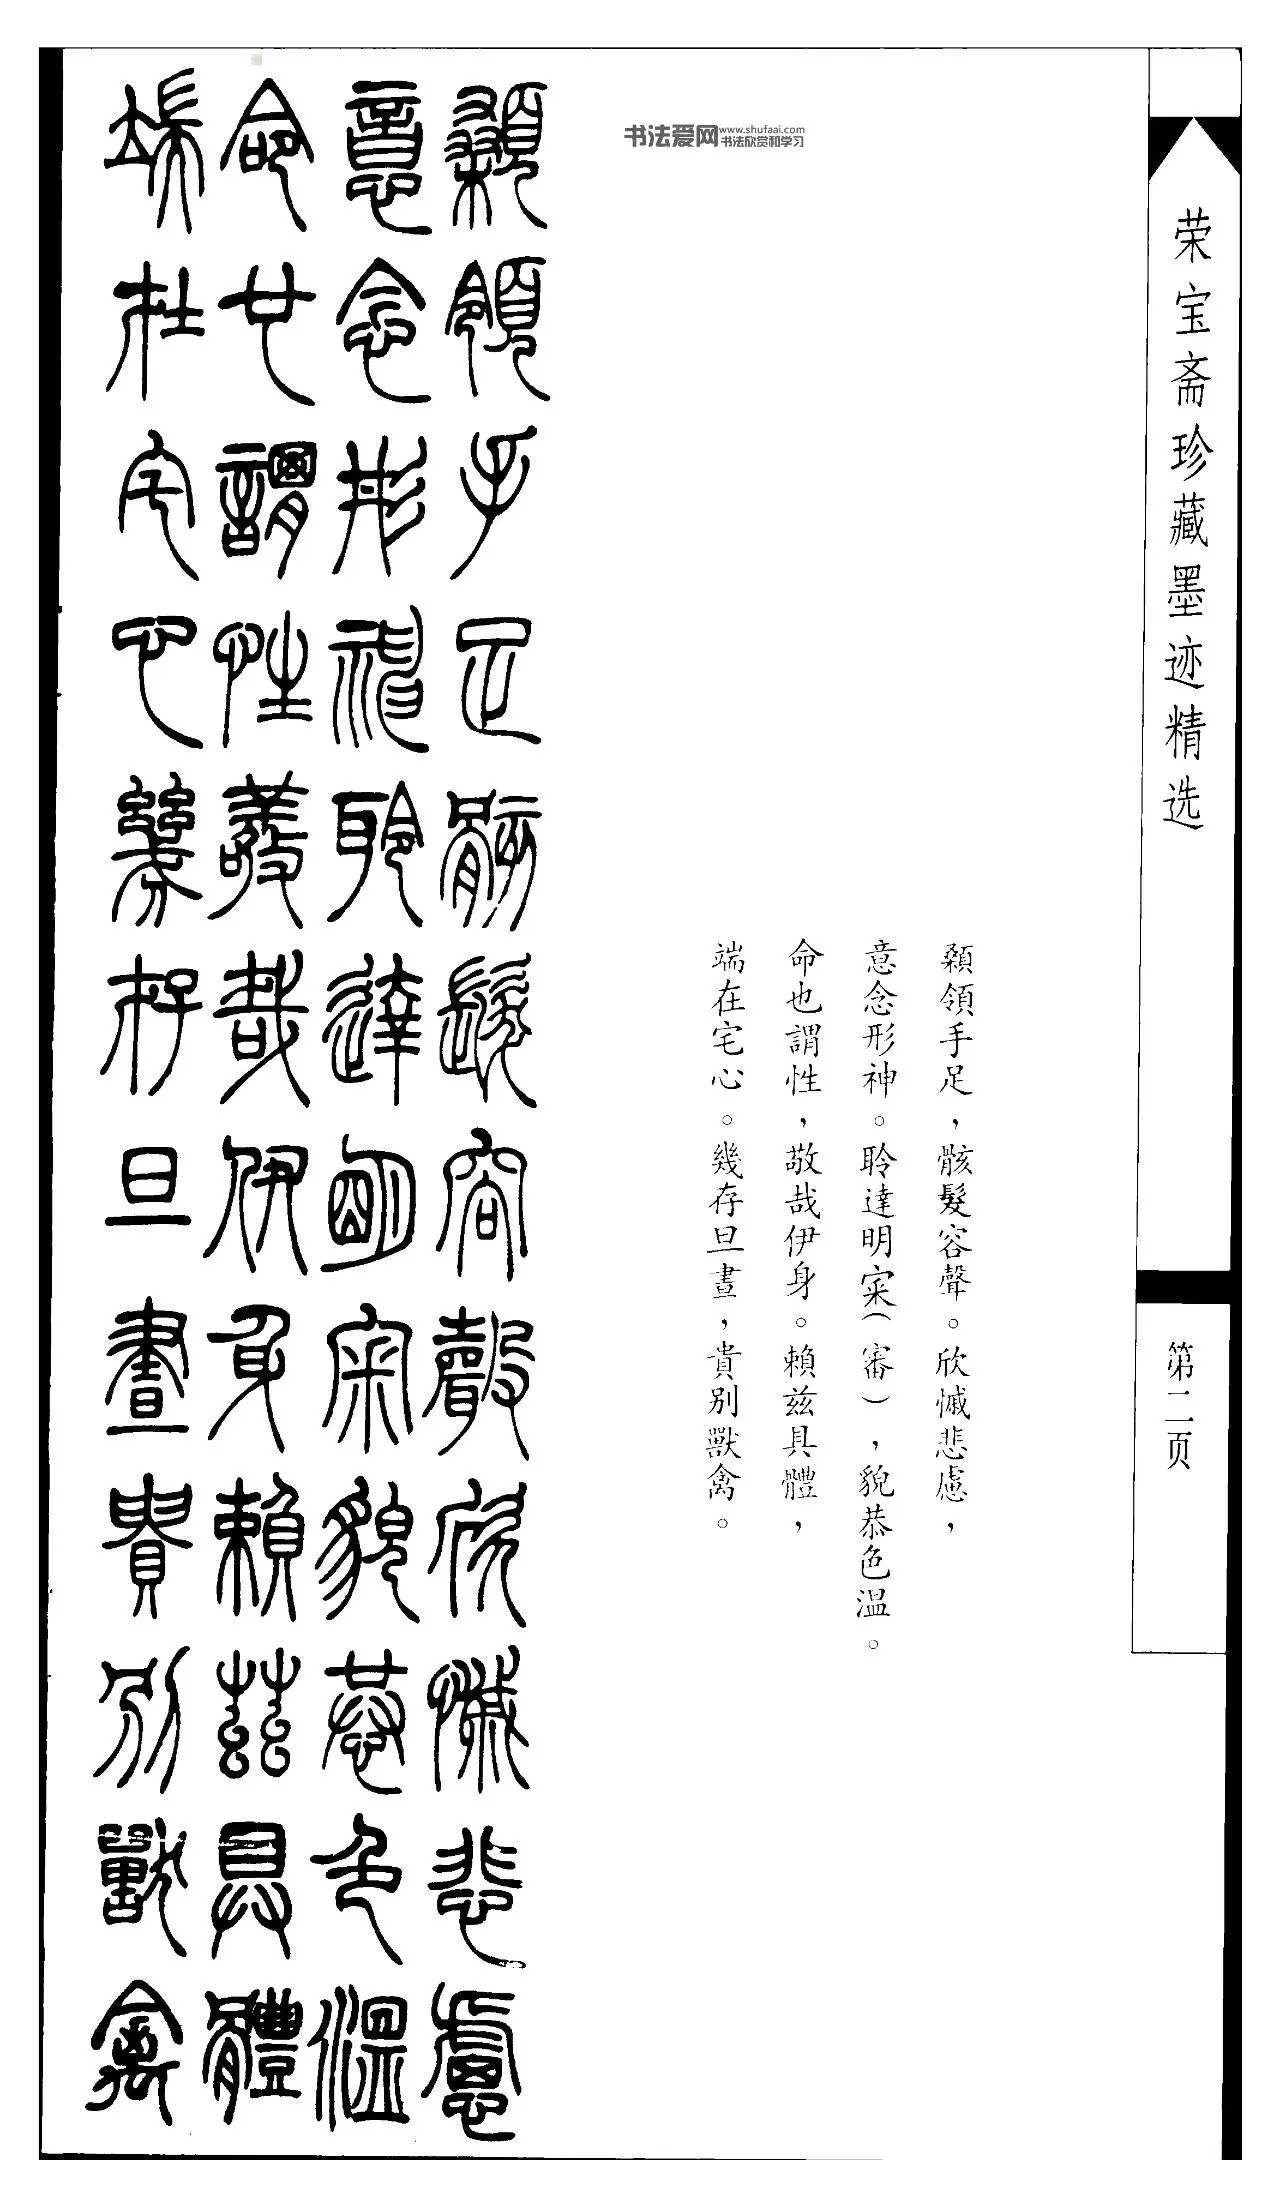 荣宝斋珍藏墨迹精选
第二页
书法爱网 www.shufaai.com
书法欣赏和学习
顙領手足，骸髮容聲。欣慽悲慮，
意念形神。聆達明宷（審），貌恭色溫。
命也謂性，敬哉伊身。賴兹具體，
端在宅心。幾存旦晝，貴別獸禽。
顙領手足骸髮容聲欣慽悲慮
意念形神聆達明宷貌恭色溫
命也謂性敬哉伊身賴兹具體
端在宅心幾存旦晝貴別獸禽